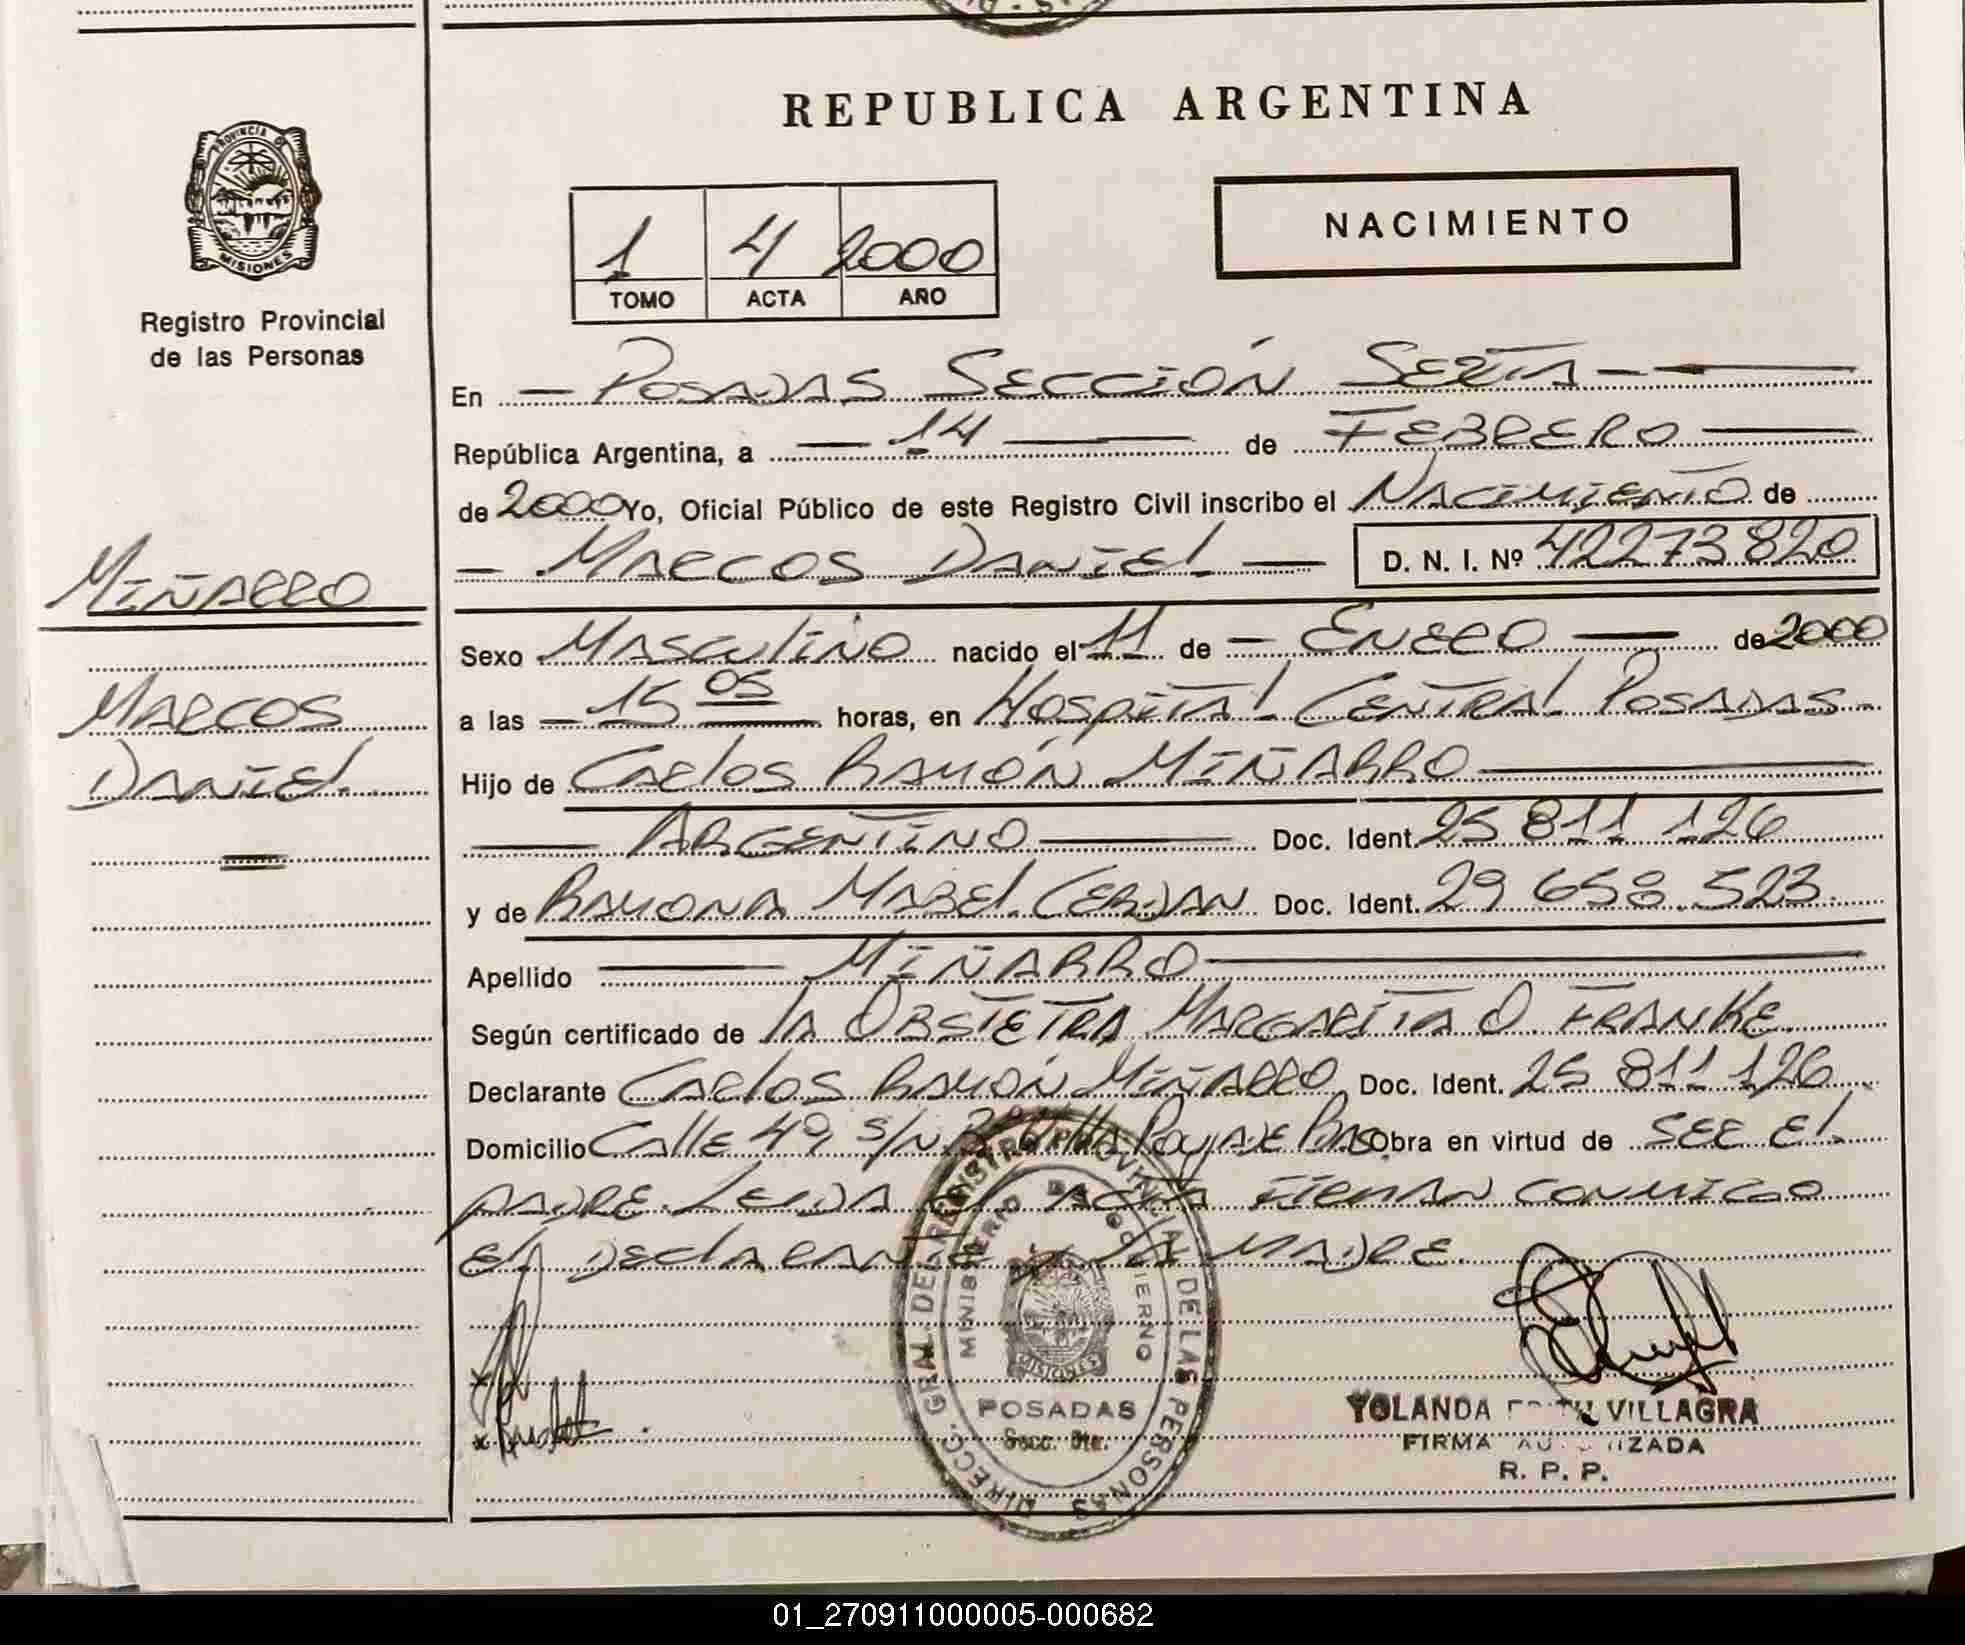 REPUBLICA ARGENTINA
PROVINCIA DE
MISIONES
Registro Provincial
de las Personas
NACIMIENTO
1 4 2000
TOMO ACTA AÑO
En - POSADAS SECCIÓN SEXTA -
República Argentina, a - 14 - de FEBRERO -
de 2000 Yo, Oficial Público de este Registro Civil inscribo el NACIMIENTO de
- MARCOS DANIEL - D. N. I. Nº 42273820
MIÑARRO
MARCOS
DANIEL
Sexo MASCULINO nacido el 11 de - ENERO - de 2000
a las - 15 05 horas, en HOSPITAL CENTRAL POSADAS -
Hijo de CARLOS RAMÓN MIÑARRO -
- ARGENTINO - Doc. Ident. 25 811 126
y de RAMONA MABEL CERDAN Doc. Ident. 29 658.523
Apellido - MIÑARRO -
Según certificado de LA OBSTETRA MARGARITA O. FRANKE
Declarante CARLOS RAMÓN MIÑARRO Doc. Ident. 25 811 126
Domicilio CALLE 49, S/N Obra en virtud de SER EL
PADRE. LEIDA EL ACTA FIRMAN CONMIGO
EL DECLARANTE y LA MADRE.
DIRECC. GRAL. DEL REGISTRO PROVINCIAL DE LAS PERSONAS
MINISTERIO DE GOBIERNO
MISIONES
POSADAS
Secc. 6ta.
YOLANDA VILLAGRA
FIRMA AUTORIZADA
R. P. P.
01_270911000005-000682